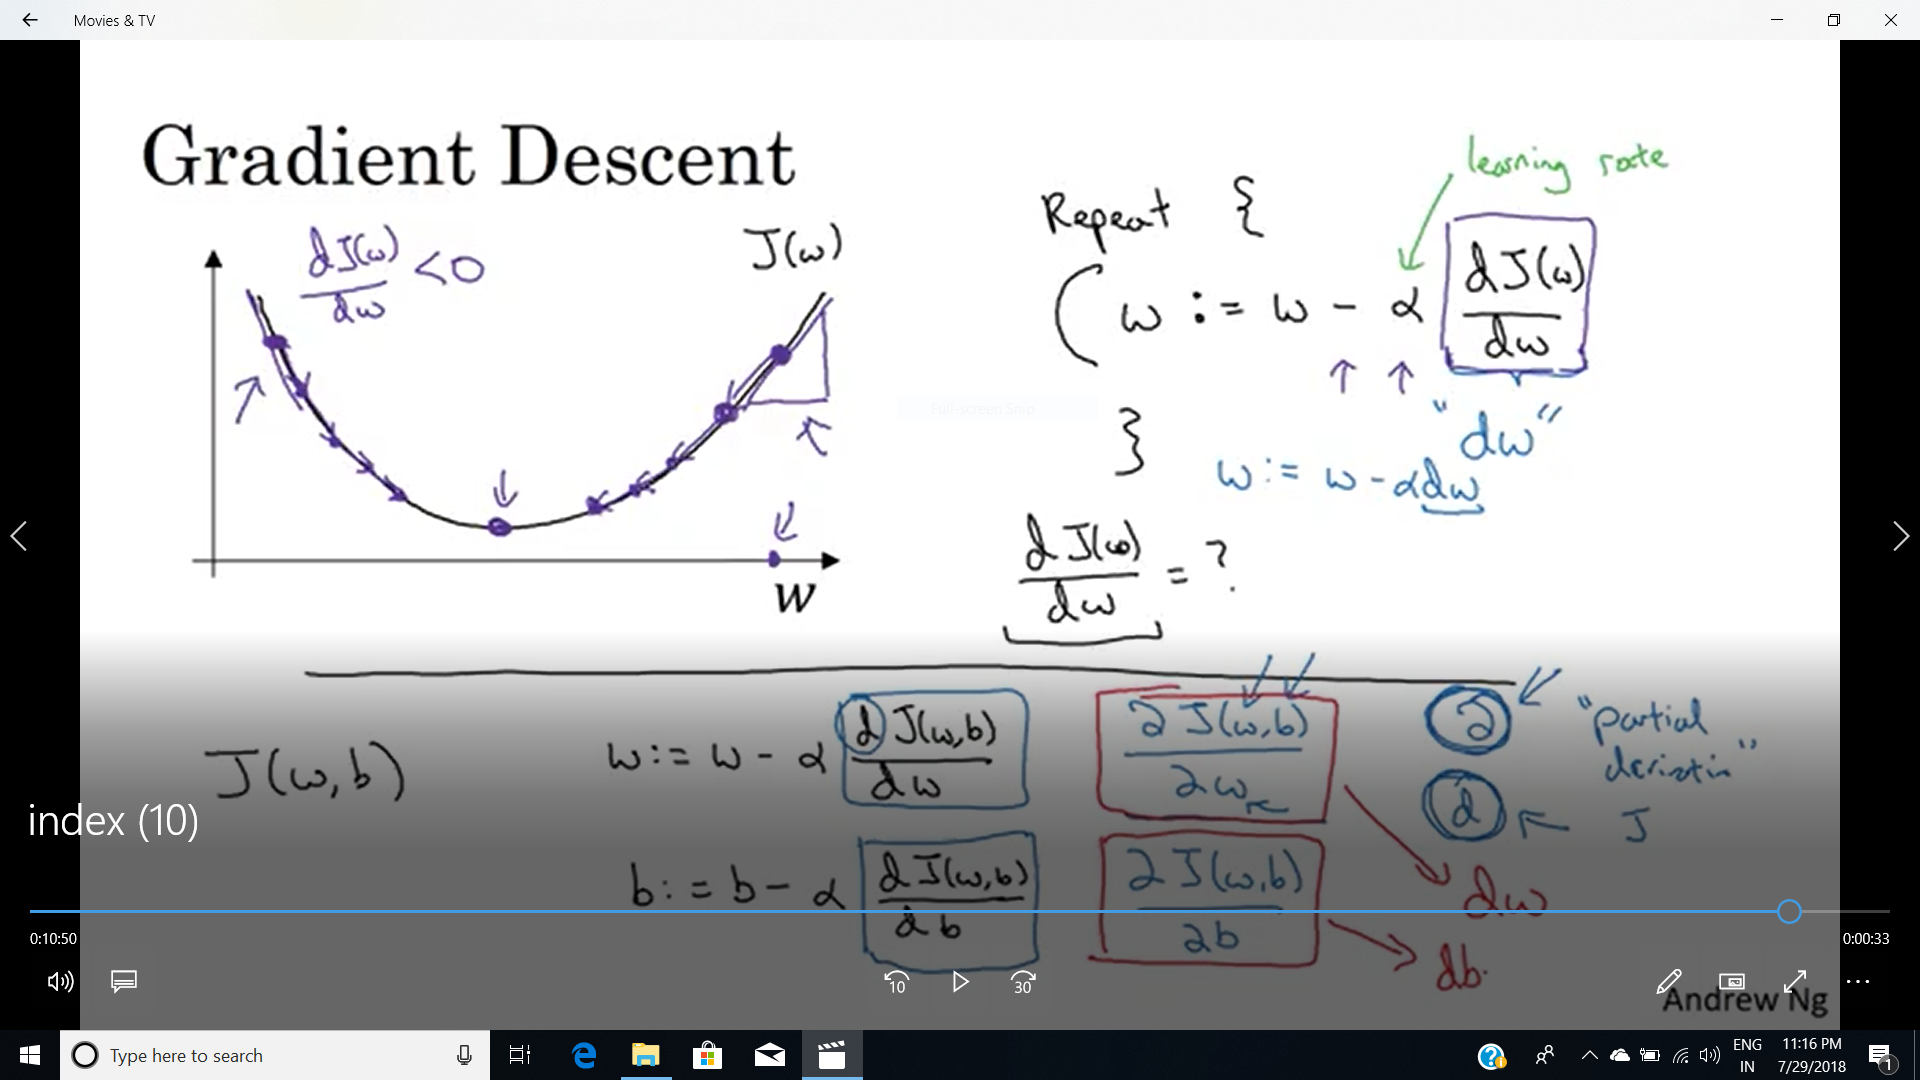 Movies & TV
Gradient Descent
learning rate
dJ(w)/dw < 0
J(w)
Repeat {
w := w - α dJ(w)/dw
"dw"
}
w := w - αdw
dJ(w)/dw = ?
w
J(w,b)
w := w - α dJ(w,b)/dw
∂J(w,b)/∂w
∂
"partial
"
d
J
index (10)
b := b - α dJ(w,b)/db
∂J(w,b)/∂b
dw
db
0:10:50
0:00:33
10
30
Andrew Ng
Type here to search
ENG
IN
11:16 PM
7/29/2018
1